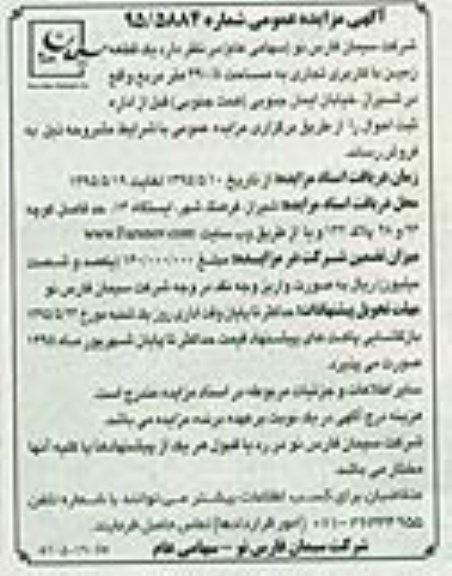 آگهی مزایده عمومی شماره ۹۵/۵۸۸۴
شرکت سیمان فارس نو (سهامی عام) در نظر دارد یک قطعه
زمین با کاربری تجاری به مساحت متر مربع واقع
در شیراز، خیابان ایمان جنوبی (سمت جنوبی) قبل از اداره
ثبت احوال را از طریق برگزاری مزایده عمومی با شرایط مشروحه ذیل به
فروش رساند.
زمان دریافت اسناد مزایده: از تاریخ ۱۳۹۵/۵/۱۰ لغایت ۱۳۹۵/۵/۱۹
محل دریافت اسناد مزایده: شیراز، فرهنگ شهر، ایستگاه ۱۳، حد فاصل کوچه
و ۲۸ پلاک ۱۳۳ و یا از طریق وب سایت www.Farsnov.com
میزان تضمین شرکت در مزایده: مبلغ ۱۶۰/۰۰۰/۰۰۰ (یکصد و شصت
میلیون) ریال به صورت واریز وجه نقد در وجه شرکت سیمان فارس نو
مهلت تحویل پیشنهادات: حداکثر تا پایان وقت اداری روز یک شنبه مورخ
بازگشایی پاکت های پیشنهاد قیمت حداکثر تا پایان شهریور ماه ۱۳۹۵
صورت می پذیرد.
سایر اطلاعات و جزئیات مربوطه در اسناد مزایده مندرج است.
هزینه درج آگهی در یک نوبت بر عهده برنده مزایده می باشد.
شرکت سیمان فارس نو در رد یا قبول هر یک از پیشنهادها یا کلیه آنها
مختار می باشد.
متقاضیان برای کسب اطلاعات بیشتر می توانند با شماره تلفن
(امور قراردادها) تماس حاصل فرمایند.
شرکت سیمان فارس نو – سهامی عام